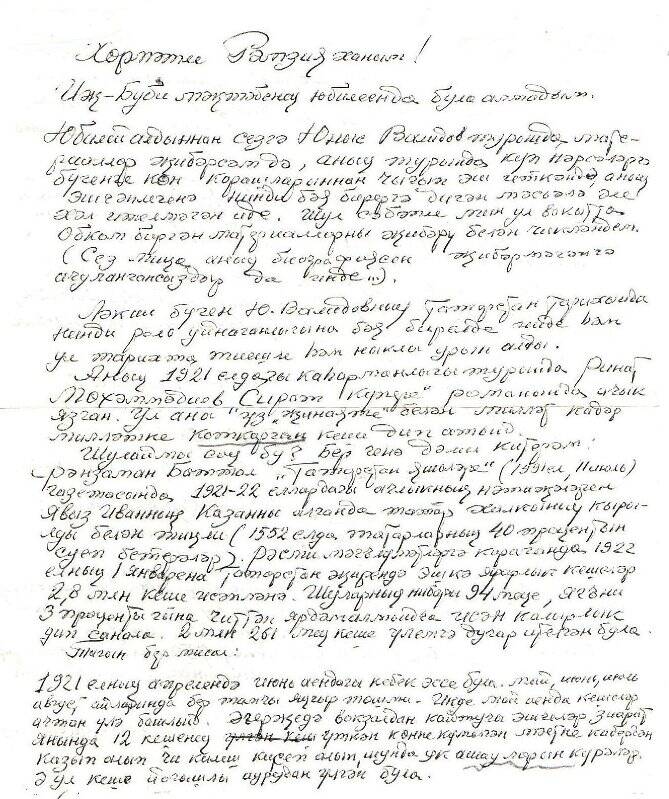 Хөрмәтле Рәмзия ханым!
Иж-Буби мәктәбенең юбилеенда була алмадым.
Юбилей алдыннан сезгә Юныс Вәлидов турында мате-
риаллар җибәрсәм дә, аның турында күп нәрсәләргә
бүгенге көн карашларыннан чыгып эш иткәндә, аның
эшчәнлегенә нинди бәя бирергә дигән мәсьәлә әле
хәл ителмәгән иде. Шул сәбәпле мин ул вакытта
Обком биргән материалларны җибәрү белән чикләндем.
(Сез миңа аның биографиясен җибәрмәгәнгә
ачулангансыздыр да инде...).
Ләкин бүген Ю. Вәлидовның Татарстан тарихында
нинди роль уйнаганлыгына бәя бирелде инде һәм
ул тарихта тиешле һәм ныклы урын алды.
Аның 1921 елдагы каһарманлыгы турында Ринат
Мөхәммәдиев "Сират күпере" романында ачык
язган. Ул аны "үз җинаяте" белән милләт кадәр
милләтне коткарган кеше дип атый.
Шулаймы соң бу? Бер генә дәлил китерәм:
Рәнзаман Баттал "Татарстан яшьләре" (1991 ел, июль)
газетасында 1921-22 еллардагы ачлыкның нәтиҗәләрен
Явыз Иванның Казанны алганда татар халкының кыры-
луы белән тиңли (1552 елда татарларның 40 процентын
суеп бетерәләр). Рәсми мәгълүмәтләргә караганда 1922
елның 1 январена Татарстан җирендә эшкә ярарлык кешеләр
2,8 млн кеше исәпләнә. Шуларның нибары 94 мең, ягъни
3 проценты гына читтән ярдәм алмыйча исән калырлык
дип санала. 2 млн 261 мең кеше үлемгә дучар ителгән була.
Тагын бер мисал:
1921 елның апрелендә июнь аендагы кебек эссе була. Май, июнь, июль
август айларында бер тамчы яңгыр төшми. Инде май аенда кешеләр
ачтан үлә башлый. Әгерҗедә вокзалдан кайтучы эшчеләр зират
янында 12 кешенең үлгән кеш үткән көнне күмелгән мәетне кабереннән
казып алып чи килеш кисеп алып, шунда ук ашау ларын күрәләр.
Ә ул кеше йогышлы аурудан үлгән була.